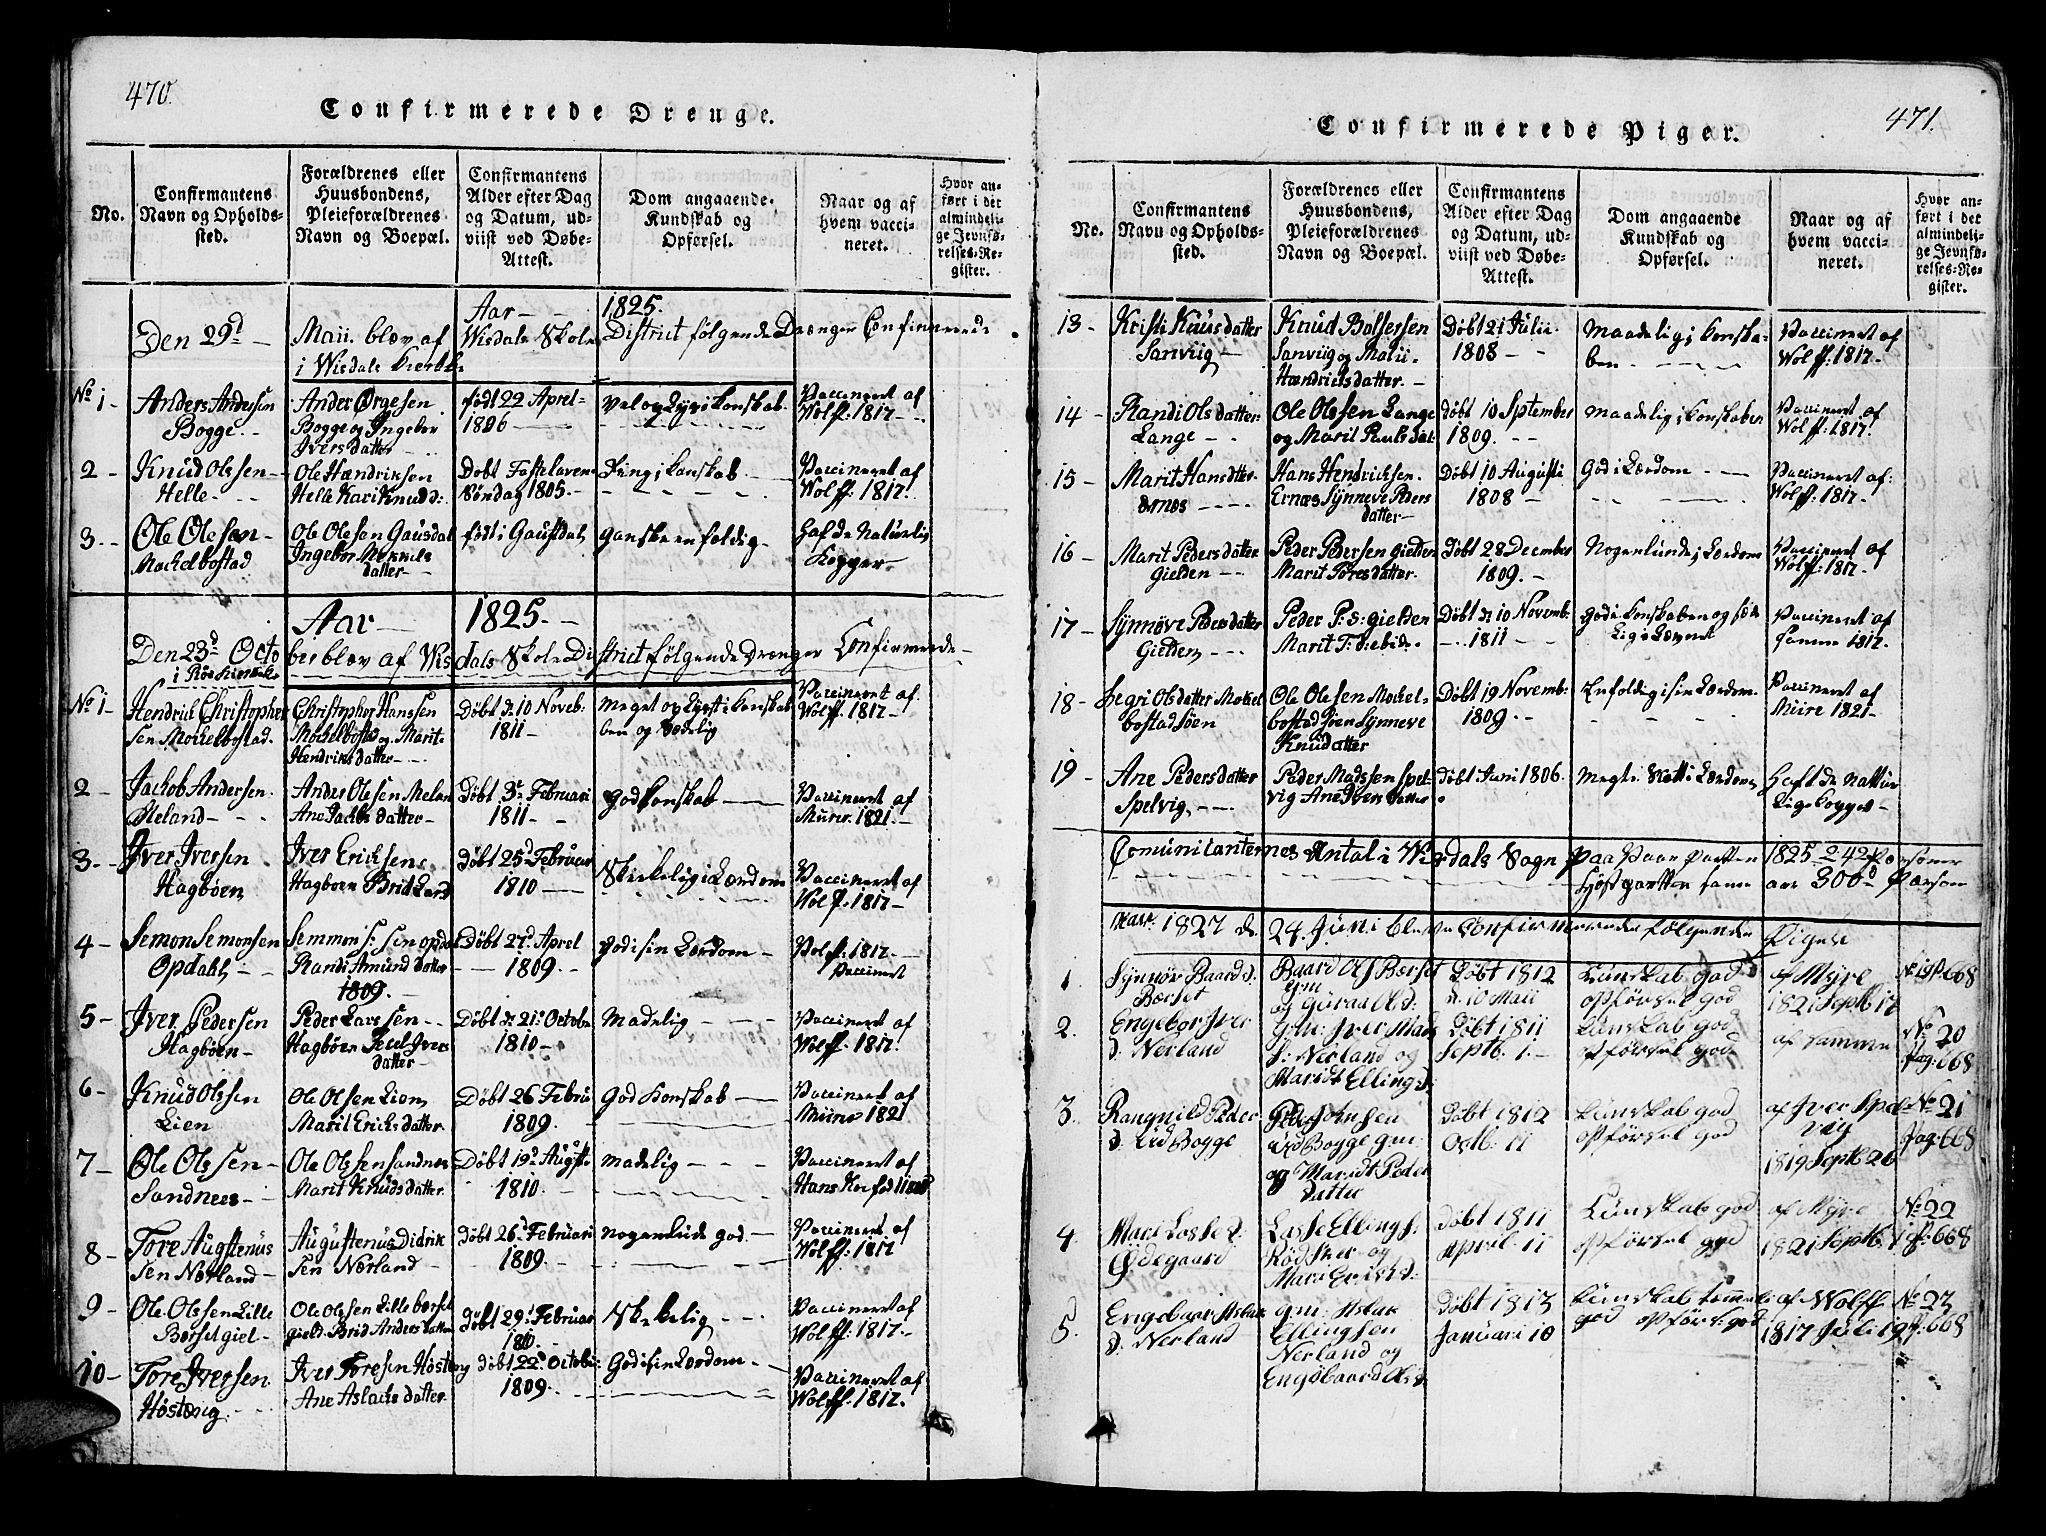 470.
Confirmerede Drenge.
No.
Confirmantens
Navn og Opholds-
sted.
Forældrenes eller
Huusbondens,
Pleieforældrenes
Navn og Boepæl.
Confirmantens
Alder efter Dag
og Datum, ud-
viist ved Døbe-
Attest.
Dom angaaende
Kundskab og
Opførsel.
Naar og af
hvem vacci-
neret.
Hvor an-
ført i det
almindeli-
ge Jevnfø-
relses-Re-
gister.
Aar - - 1825.
Den 29d Maii blev af Wisdals Skole District følgende Drænger Confirmerede
i Wisdals Kierke
No 1 -
Anders Andersen
Bogge. -
Ander Ørgesen
Bogge og Ingebor
Iversdatter -
født 22 Aprel -
1806
vel og Lys i konskab.
Vaccineret af
Wolff. 1817 -
2 -
Knud Olssen -
Helle - - -
Ole Hændriksen
Helle Kari Knudd:
Døbt Fastelavens
Søndag 1805. -
Ring i konskab
Vaccineret af
Wolff: 1817.
3. -
Ole Olesen -
Mochelbostad
Ole Olesen Gausdal
Ingebor Mokkels
datter -
født i Gausdal
ganske enfoldig -
Hafde Naturlig
Kopper -
Aar - 1825. -
Den 23d Octo
ber blev af Wisdals Skole District følgende Drænger Confirmerede -
i Røe Kierke
No 1 -
Hendrick Christopher
sen Mochelbostad.
Christopher Hanssen
Mochelbosta og Marit
Hændriksdatter - - -
Døbt d. 10 Noveb:
1811 -
meget og Lyst i konskab
ben og Sædelig
Vaccineret af
Wolff. 1817 -
2 -
Jachob Andersen
Meland - - -
Ander Olesen Melan
Ane Jachobsdatter -
Døbt 3d Februari
1811 - -
god konskab
Vaccineret af
Muire. 1821. -
3. -
Iver Iversen
Hagbøen
Iver Eriksen
Hagbøen Brit Larsd
Døbt 25d Februar
1810
Skikkelig i Lærdom
Vaccineret af
Wolff. 1817 -
4 -
Semon Semonsen
Opdahl -
Semmon S: sen opdal
Randi Amund datter
1809. -
Døbt 27d Aprel
1809. -
god i sin Lærdom -
Wolff. 1817 -
Vaccineret
5 -
Iver Pedersen
Hagbøen -
Peder Larssen - -
Hagbøen Iver
datter -
Døbt d. 21. Octobr
1810 -
Madelig - - -
Vaccineret af
Wolff. 1817. -
6 -
Knud Olssen
Lien
Ole Olsen Lien
Marit Ericksdatter.
Døbt 26 Febru
1809. -
God Konskab
Vaccineret af
Muire 1821
7 -
Ole Olssen -
Sandnees -
Ole Olssen Sandnes
Marit Knudsdatter.
Døbt 19d August
1810. -
madelig - - -
Vaccineret af
Hans
8 -
Tore Augstenus
sen Nærland -
Augustenus Didrik
sen Nærland -
Døbt 26d Februari
1809. -
nogenlude god. -
Vaccineret af
Wolff. 1817
9 -
Ole Olssen Lille
Børsetgiel -
Ole Olssen Lillebørset
gield Brid Andersdatter
døbt 29d Februar
1810. -
Skikelig - - -
Vaccineret af
Wolff: 1817. -
10 -
Tore Iversen
Høstevig. -
Iver Toresen Høstevig
Ane Aslachsdatter.
døbt 22d Octobr:
1809. -
God i sin Lærdom -
Vaccineret af
Wolff. 1817.
471.
Confirmerede Piger.
No.
Confirmantens
Navn og Opholds-
sted.
Forældrenes eller
Huusbondens,
Pleieforældrenes
Navn og Boepæl.
Confirmantens
Alder efter Dag
og Datum, ud-
viist ved Døbe-
Attest.
Dom angaaende
Kundskab og
Opførsel.
Naar og af
hvem vacci-
neret.
Hvor an-
ført i det
almindeli-
ge Jevnfø-
relses-Re-
gister.
13 -
Kristi Knusdatter
Sanviig -
Knud Bottersen
Sanviig og Malii
Hændrichsdatter. -
Døbt 21 Julii
1808 - -
Maadelig i konska-
ben - - -
Vaccineret af
Wolff. 1817 -
14 -
Randi Olsdatter
Lange - -
Ole Olssen Lange
og Marit Paulsdat
døbt 10 September
1809. - -
maadelig i konskaben
Vaccineret af
Wolff: 1817.
15 -
Marit Hansdtter
Ernæs - - - -
Hans Hendricksen
Ernæs Synneve Peders
datter -
Døbt 10 Augusti
1808 -
God i Lærdom - - -
Vaccineret af:
Wolff: 1817 -
16 -
Marit Pedersdatter
Gielden - - -
Peder Pedersen Gielden
Marit Toresdatter.
Døbt 28 December
1809. -
Nogenlunde i Lærdom
Vaccineret af
Wolff: 1817. -
17 -
Synnøve Pedersdatter
Gielden - - -
Peder P: S: Gielden
Marit T: ibide -
Døbt d. 10 Novemb:
- .. 1811 -
God i konskaben og
Vaccineret af
samme 1817.
18 -
Segri Olsdatter Mokel
bostadsøen
Ole Olesen Mochel-
bostadsøen Synneve
Knudatter
Døbt 19 Novemb:
1809. -
Enfoldig i sin Lærdom
Vaccineret af
Muire 1821 -
19 -
Ane Pedersdatter
Spelvig, - -
Peder Madssen Spel-
vig Ane Iversdatter
døbt Juni 1806.
Megt Slett i Lærdom
Hafde Nattur
Lige kopper -
Comunicanternes Antal i Wisdals Sogn paa Vaar Parten 1825 242 Personer
Høst parten samme aar 300d Person
Aar. 1827 d. 24 Juni bleve Confirmerede følgende Piger
1
Synnør Baard d.
Børset
Baard Ols Børset
gm
og Guraa Olsd:
Døbt 1812
d. 10 Maii
Kundskab god
opførsel god
af Myre
1821 Septb 17
No 19 p. 668
2.
Engebor Iver
d. Nerland
gm: Iver Mads
S: Nerland og
Maridt Ellings d:
Døbt 1811
Septb. 1. -
Kundskab god
opførsel god
af samme
No 20
Pag: 668
3.
Rangnild Peder
d. Lid Bogge
Peder Johnsen
Lid Bogge gm:
og Maridt Peder
datter
Døbt 1812
Octb. 11
Kundskab god
opførsel god
af Iver Spel-
vig
1819 Septb 26
No 21
Pag: 668
4.
Mari Lasse d.
Ødegaard
Lasse Ellings:
Rødsker og
Mari Erichsd:
døbt 1811
April. 11
Kundskab god
opførsel god
af Myre
1821 Septb. 1
No 22
p: 668
5.
Engebaar Aslak
d. Nerland
gm: Aslak
Ellingsen
Nerland og
Engebaar Olsd
døbt 1813
Januari 10
Kundskab temmeli
god opførsel god
af Wolff
1817 Juli 19
No 23
p: 668